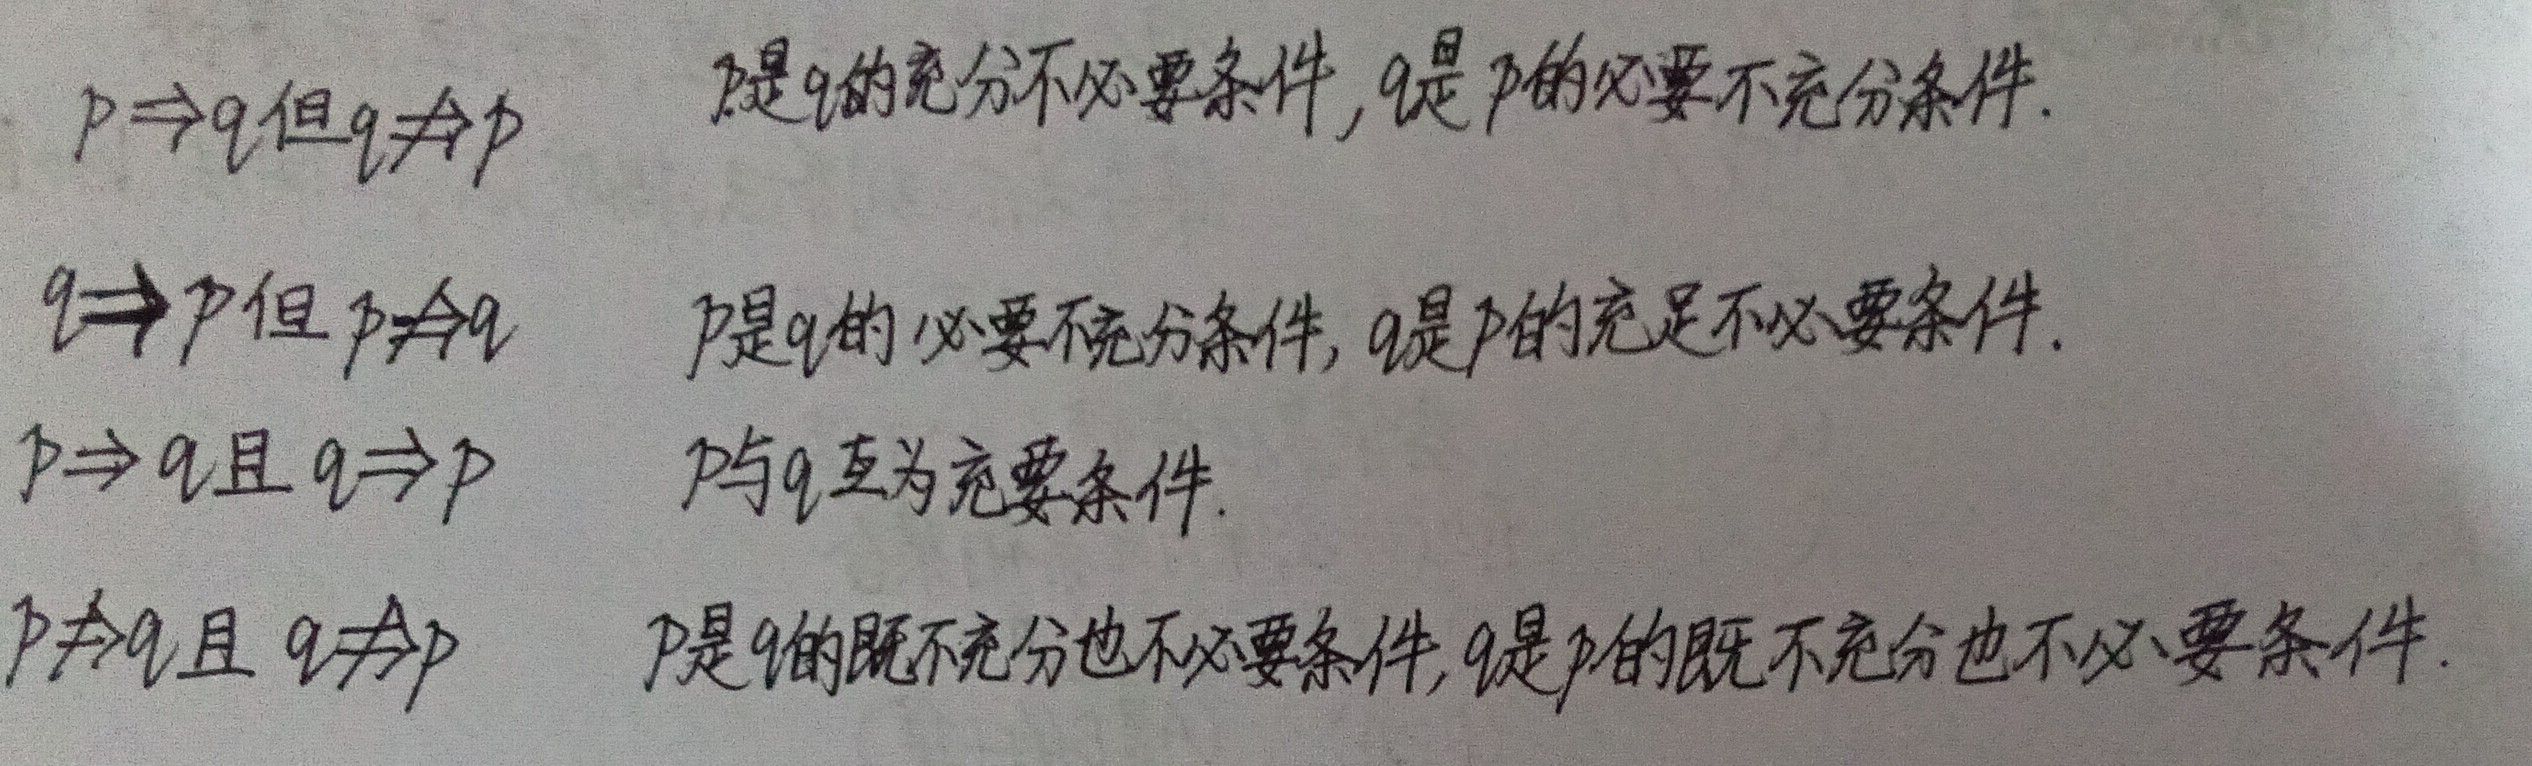 p⇒q但q⇏p p是q的充分不必要条件,q是p的必要不充分条件.
q⇒p但p⇏q p是q的必要不充分条件,q是p的充足不必要条件.
p⇒q且q⇒p p与q互为充要条件.
p⇏q且q⇏p p是q的既不充分也不必要条件,q是p的既不充分也不必要条件.